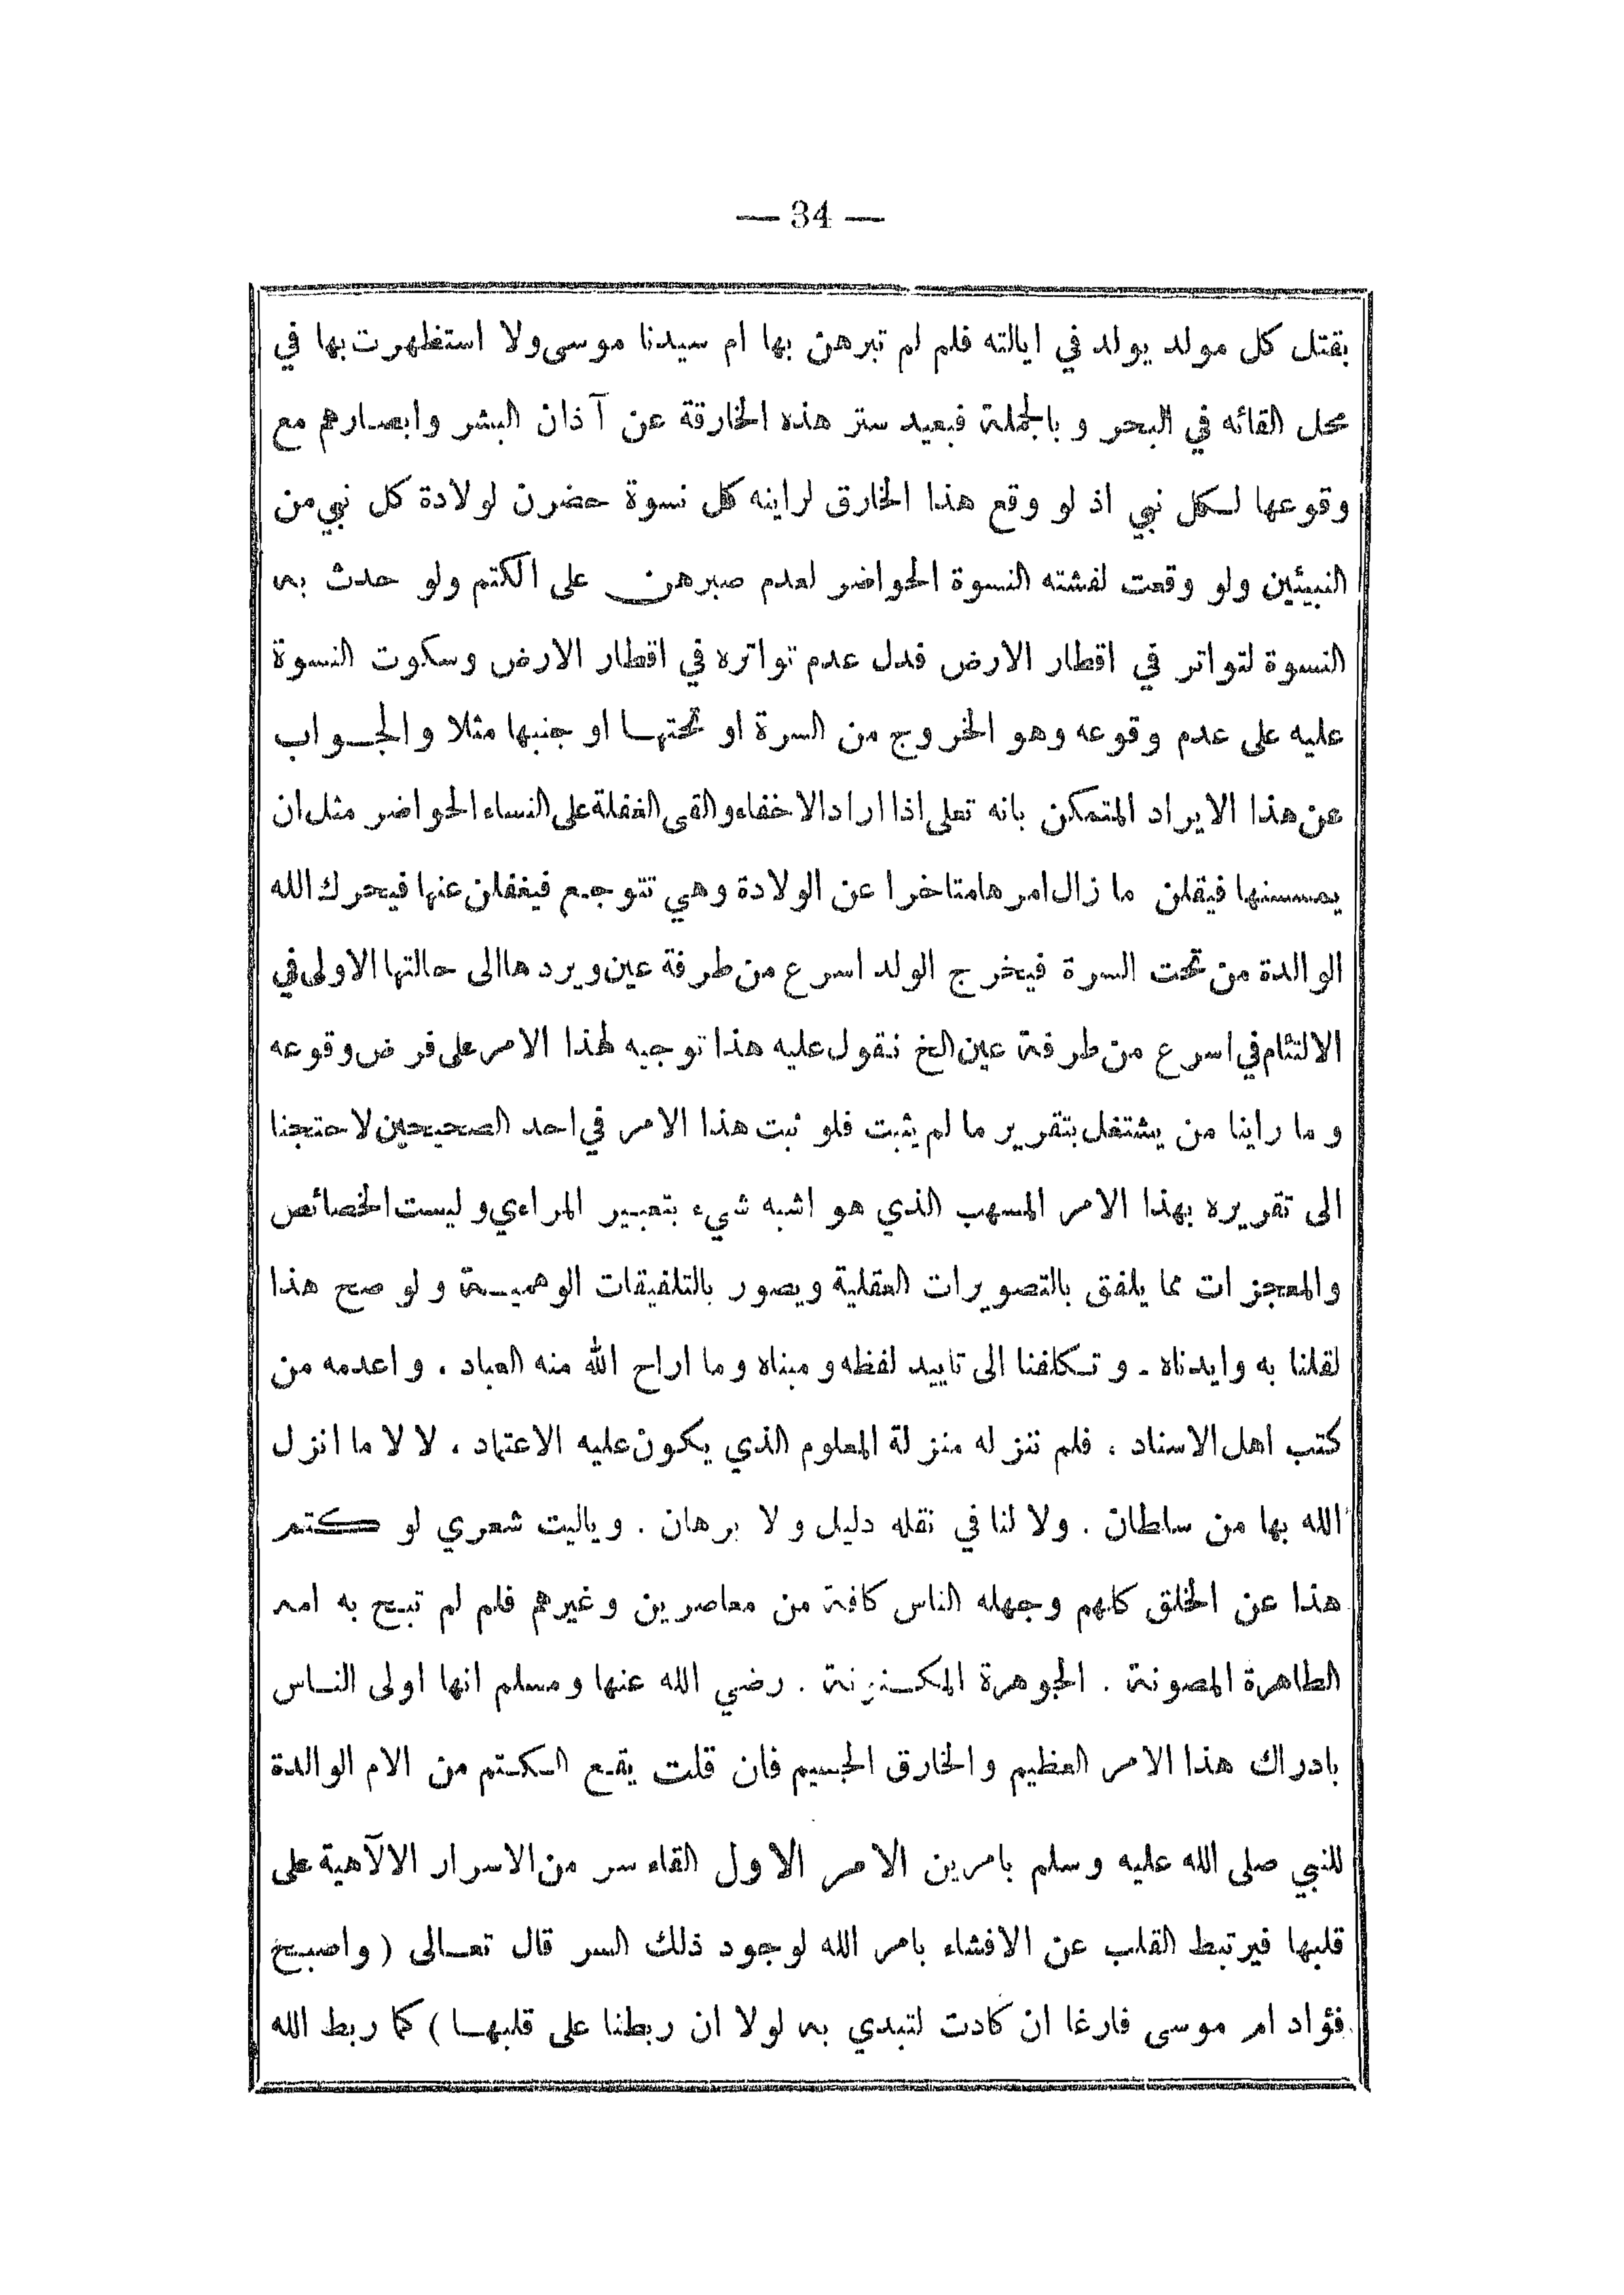 — 34 —
بقتل كل مولد يولد في ايالته فلم لم تبرهن بها ام سيدنا موسى ولا استظهرت بها في
محل القائه في البحر و بالجملة فبعيد ستر هذه الخارقة عن آذان البشر وابصارهم مع
وقوعها لكل نبي اذ لو وقع هذا الخارق لراينه كل نسوة حضرن لولادة كل نبي من
النبيئين ولو وقعت لفشته النسوة الحواضر لعدم صبرهن على الكتم ولو حدث به
النسوة لتواتر في اقطار الارض فدل عدم تواتره في اقطار الارض وسكوت النسوة
عليه على عدم وقوعه وهو الخروج من السرة او تحتها او جنبها مثلا والجواب
عن هذا الايراد المتمكن بانه تعلى اذا اراد الاخفاء والقى الغفلة على النساء الحواضر مثل ان
يمسسنها فيقلن ما زال امرها متاخرا عن الولادة وهي تتوجع فيغفلن عنها فيحرك الله
الوالدة من تحت السرة فيخرج الولد اسرع من طرفة عين ويردها الى حالتها الاولى في
الالتئام في اسرع من طرفة عين الخ نقول عليه هذا توجيه لهذا الامر على فرض وقوعه
وما راينا من يشتغل بتقرير ما لم يثبت فلو ثبت هذا الامر في احد الصحيحين لاحتجنا
الى تقريره بهذا الامر المسهب الذي هو اشبه شيء بتعبير المراءي وليست الخصائص
والمعجزات مما يلفق بالتصويرات العقلية ويصور بالتلفيقات الوهمية ولو صح هذا
لقلنا به وايدناه ـ وتكلفنا الى تاييد لفظه ومبناه وما اراح الله منه العباد ، واعدمه من
كتب اهل الاسناد ، فلم ننزله منزلة المعلوم الذي يكون عليه الاعتماد ، لا لا ما انزل
الله بها من سلطان . ولا لنا في نقله دليل ولا برهان . وياليت شعري لو كتم
هذا عن الخلق كلهم وجهله الناس كافة من معاصرين وغيرهم فلم لم تبح به امه
الطاهرة المصونة . الجوهرة المكنونة . رضي الله عنها ومسلم انها اولى الناس
بادراك هذا الامر العظيم والخارق الجسيم فان قلت يقع الكتم من الام الوالدة
للنبي صلى الله عليه وسلم بامرين الامر الاول القاء سر من الاسرار الالآهية على
قلبها فيرتبط القلب عن الافشاء بامر الله لوجود ذلك السر قال تعالى ( واصبح
فؤاد ام موسى فارغا ان كادت لتبدي به لولا ان ربطنا على قلبها ) كما ربط الله